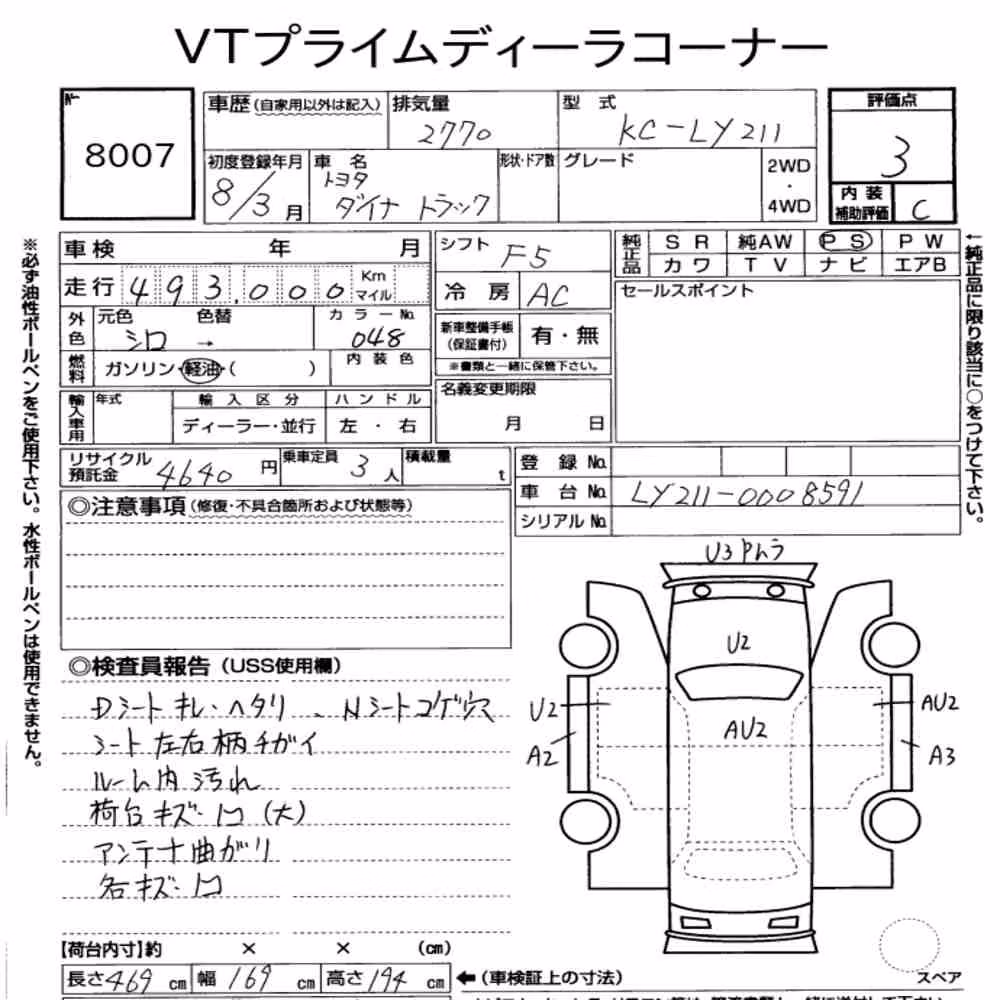 VTプライムディーラコーナー
№
8007
車歴(自家用以外は記入)
排気量
2770
型式
KC-LY211
評価点
3
初度登録年月
8/3月
車名
トヨタ
ダイナ トラック
形状・ドア数
グレード
2WD
・
4WD
内装
補助評価
C
車検 年 月
シフト
F5
純正品
SR 純AW PS PW
カワ TV ナビ エアB
走行 493,000 Km
マイル
冷房 AC
セールスポイント
外色
元色 色替
シロ →
カラーNo.
048
新車整備手帳
(保証書付)
有・無
※書類と一緒に保管下さい。
燃料
ガソリン・軽油・( )
内装色
名義変更期限
月 日
輸入車用
年式
輸入区分
ハンドル
ディーラー・並行
左・右
リサイクル
預託金
4640円
乗車定員 3人
積載量 t
登録No.
車台No. LY211-0008591
シリアルNo.
◎注意事項(修復・不具合箇所および状態等)
◎検査員報告(USS使用欄)
Dシート キレ・ヘタリ 、Nシートコゲ穴
シート左右柄チガイ
ルーム内 汚れ
荷台キズ・凹 (大)
アンテナ曲がり
各キズ・凹
U3 Pムラ
U2
U2
AU2
AU2
A2
A3
【荷台内寸】約 × × (cm)
長さ469cm 幅169cm 高さ194cm
←(車検証上の寸法)
スペア
※必ず油性ボールペンをご使用下さい。水性ボールペンは使用できません。
←純正品に限り該当に○をつけて下さい。